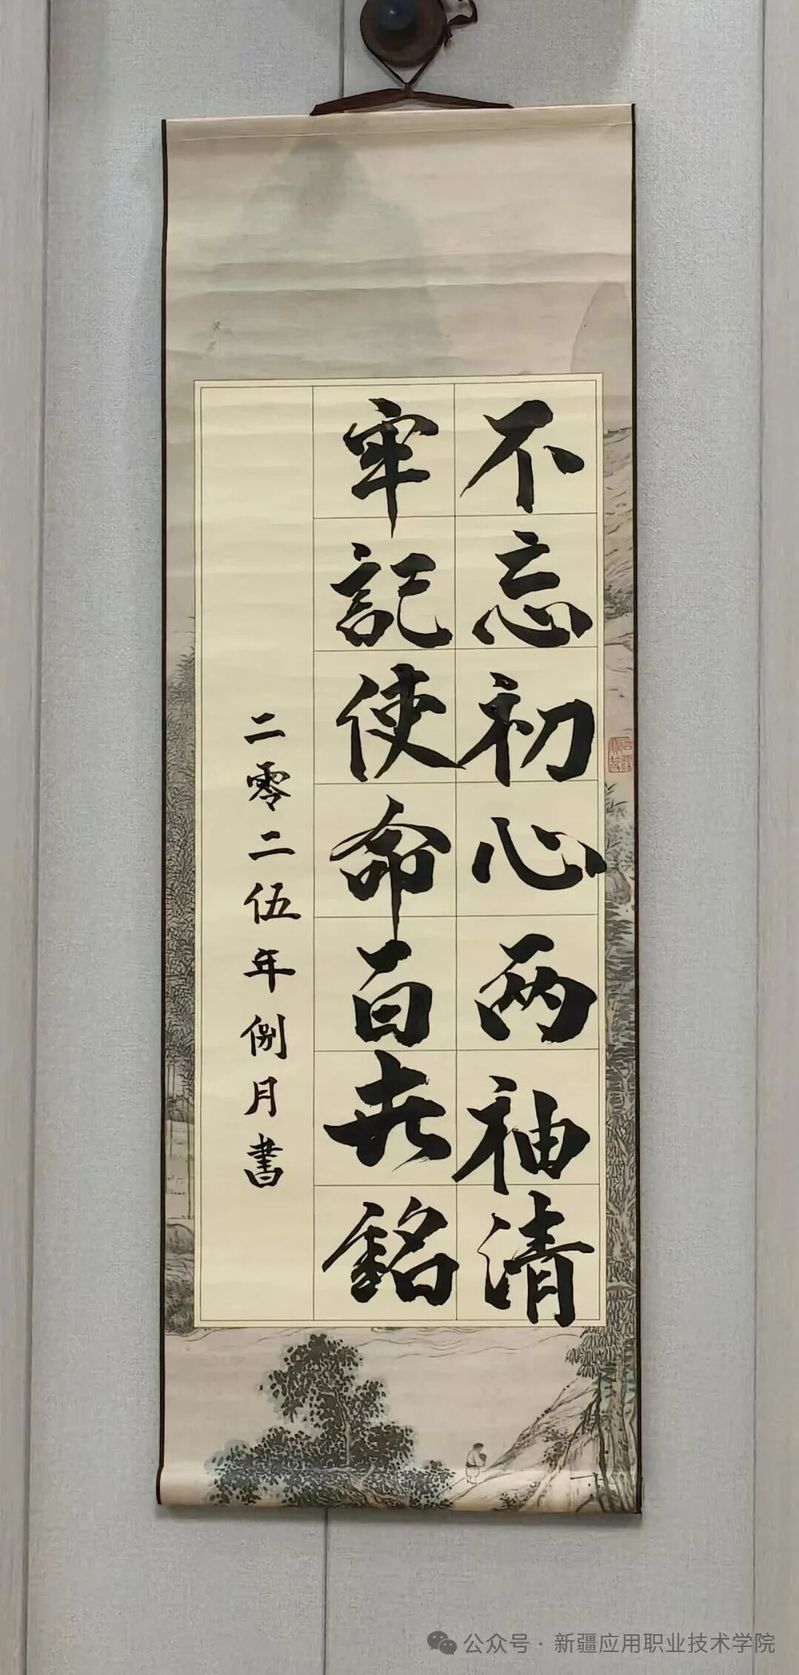 不忘初心两袖清
牢記使命百世銘
二零二伍年捌月書
公众号·新疆应用职业技术学院